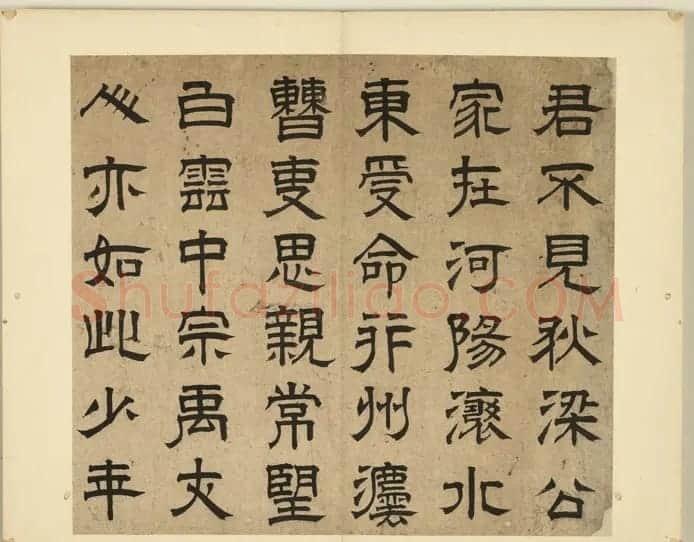 君不見狄梁公
家在河陽水
東受命并州灋
曹吏思親常望
白雲中宗禹丈
人亦如此少年
Shufaziliao.COM